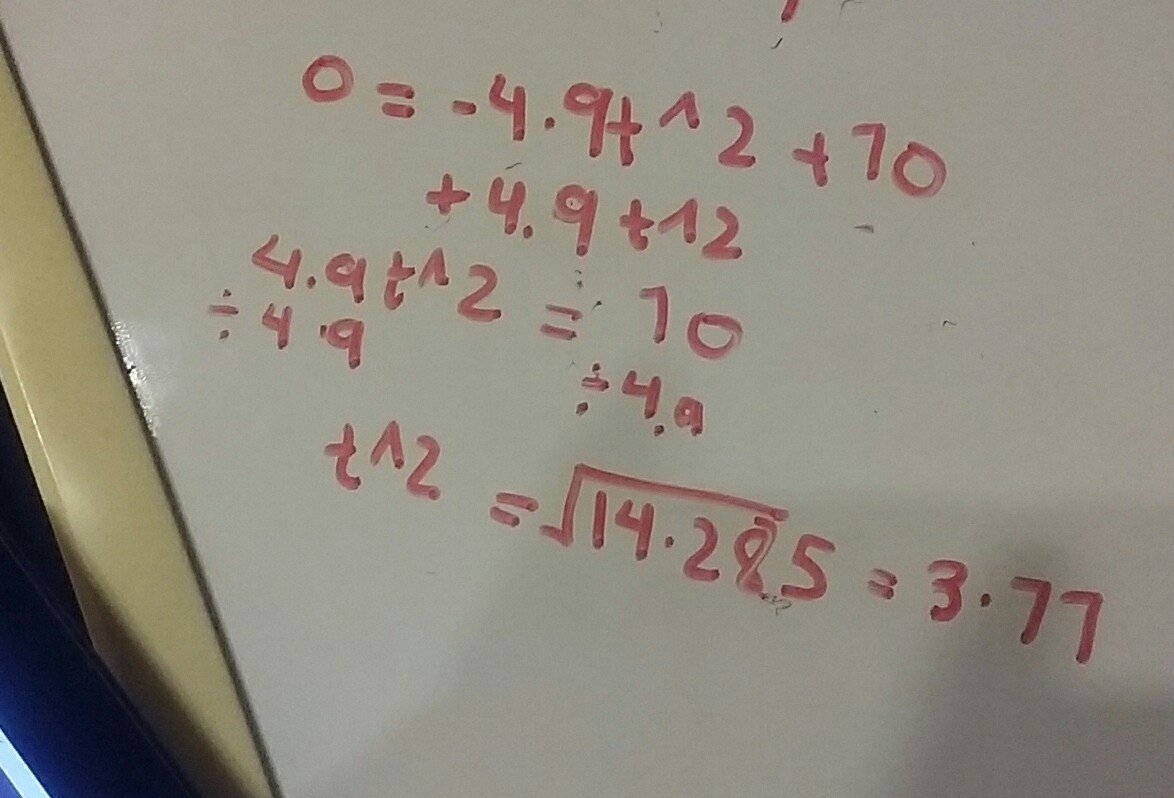 0 = -4.9t^2 + 70
+ 4.9 t^2
4.9t^2 = 70
÷ 4.9 ÷ 4.9
t^2 = √14.285 = 3.77